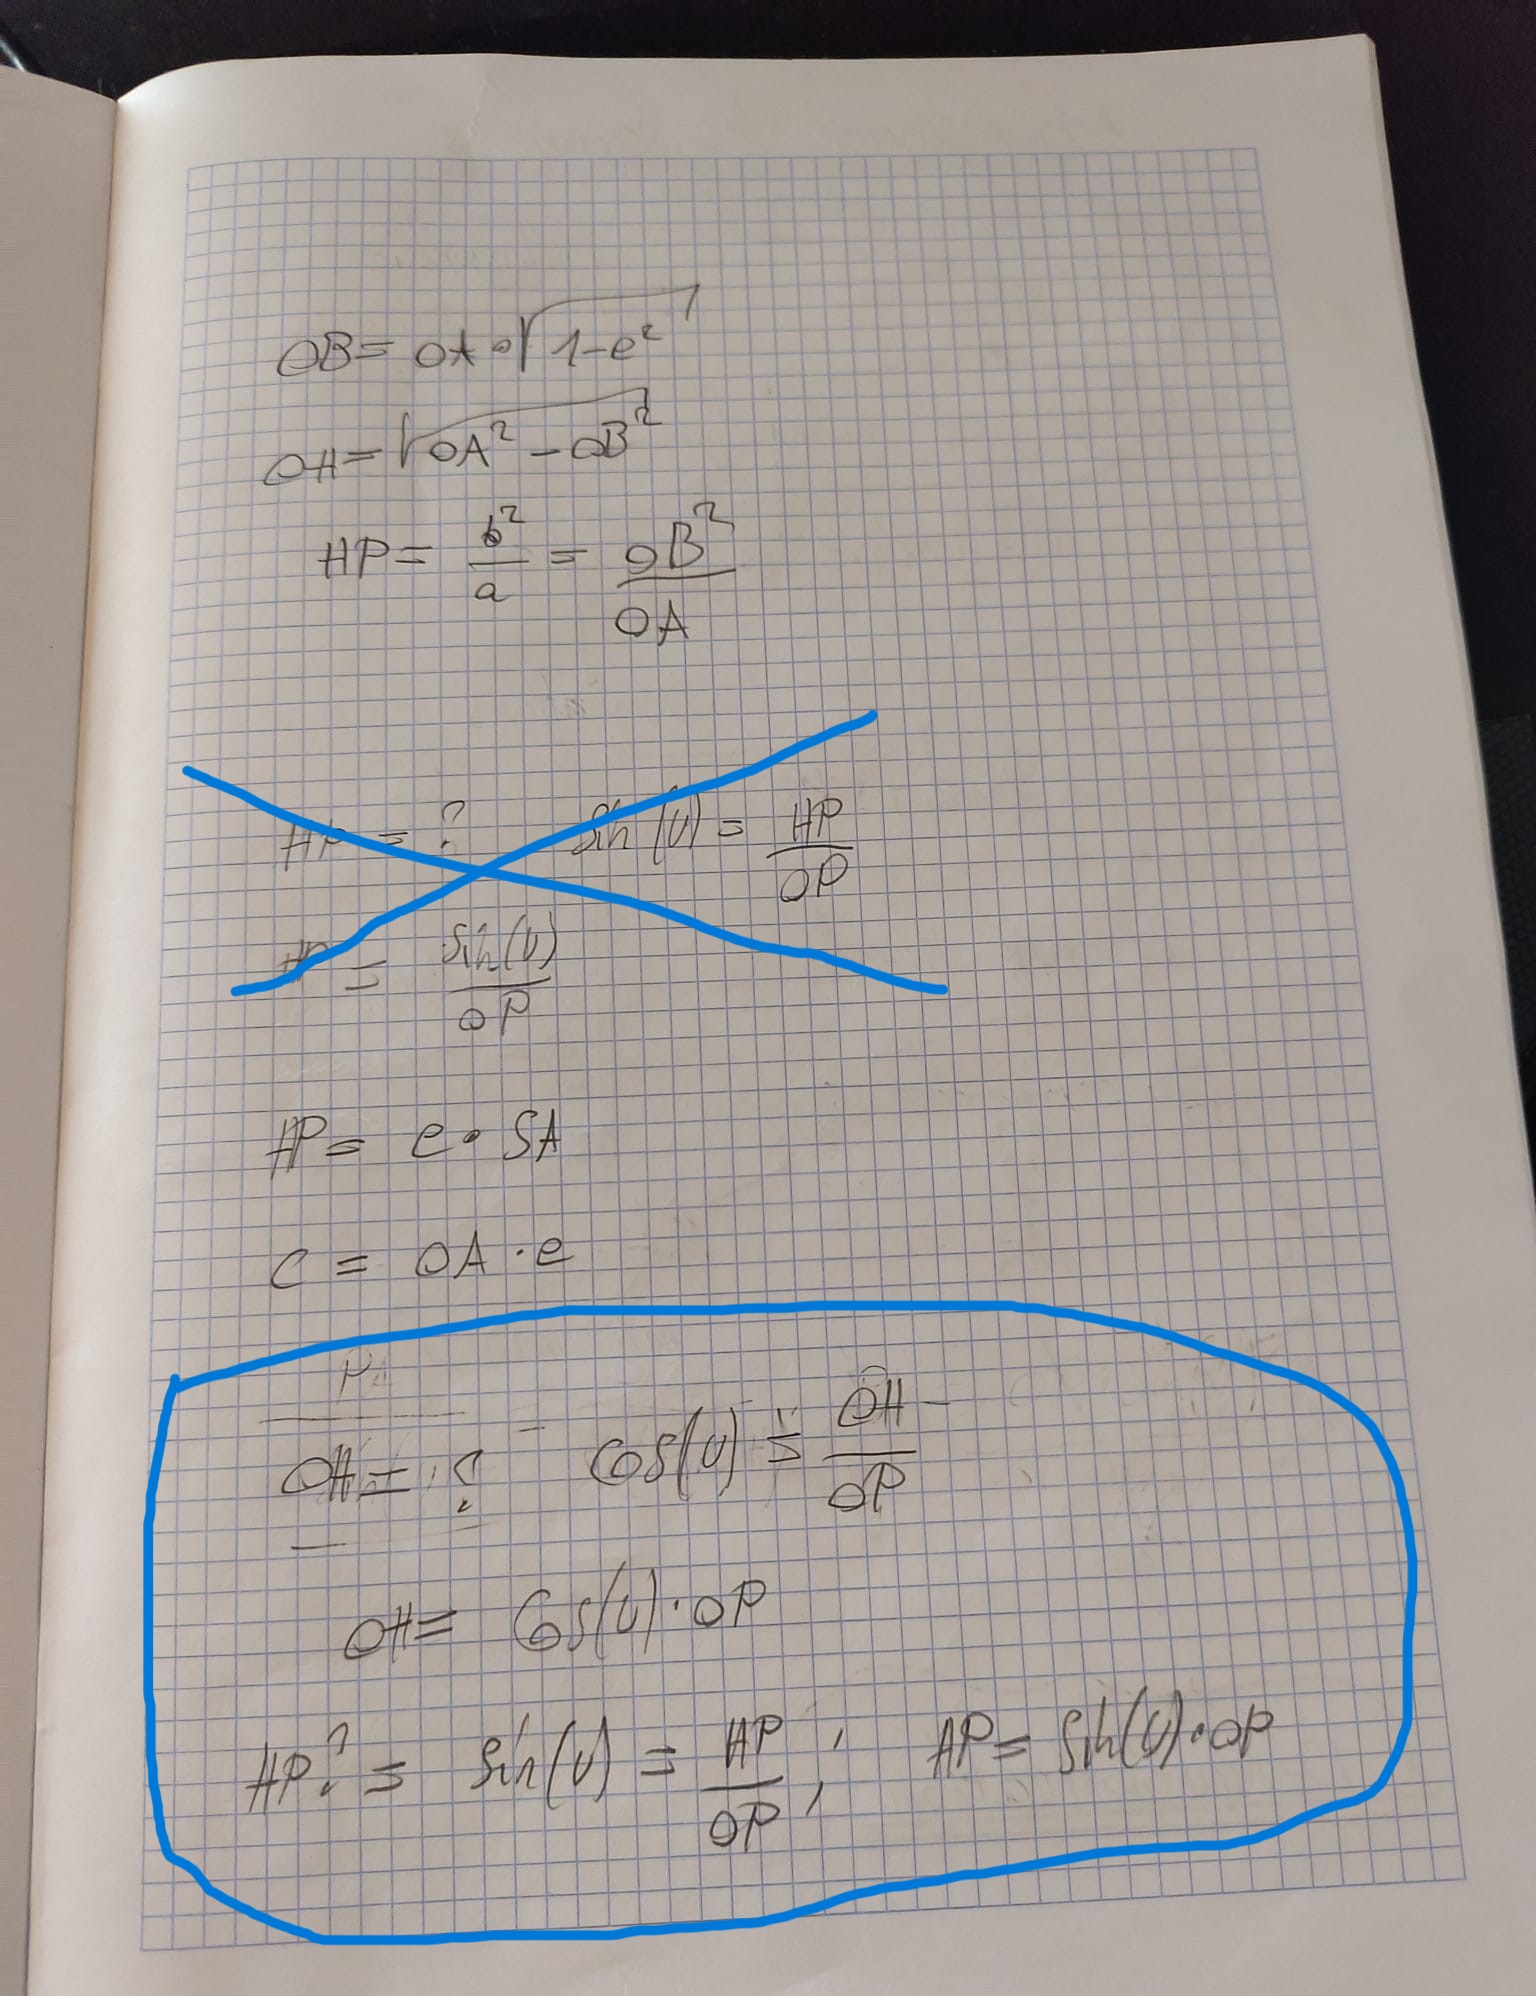 OB = OA • √(1-e²)
OH = √(OA² - OB²)
HP = b²/a = OB²/OA
HP = ? sin(υ) = HP/OP
HP = sin(υ)/OP
HP = e • SA
c = OA · e
OH = ? cos(υ) = OH/OP
OH = cos(υ) · OP
HP? = sin(υ) = HP/OP ; HP = sin(υ) • OP